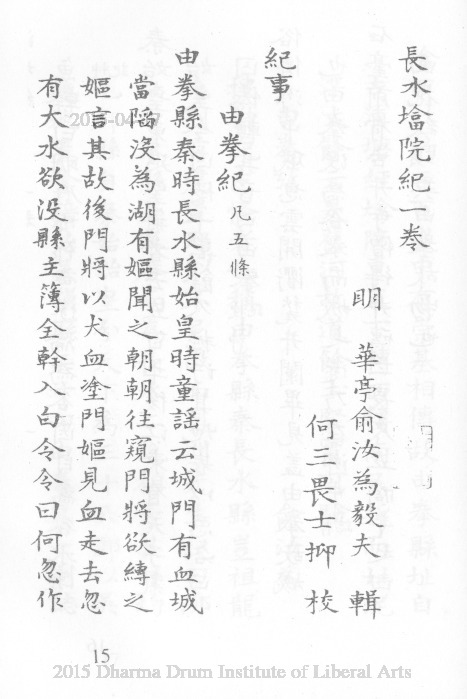 長水塔院紀一卷
明 華亭俞汝為毅夫 輯
何三畏士抑 校
紀事
由拳紀 凡五條
由拳縣秦時長水縣始皇時童謡云城門有血城
當陷没為湖有嫗聞之朝朝往窺門將欲縛之
嫗言其故後門將以犬血塗門嫗見血走去忽
有大水欲没縣主簿全幹入白令令曰何忽作
15
2015 Dharma Drum Institute of Liberal Arts